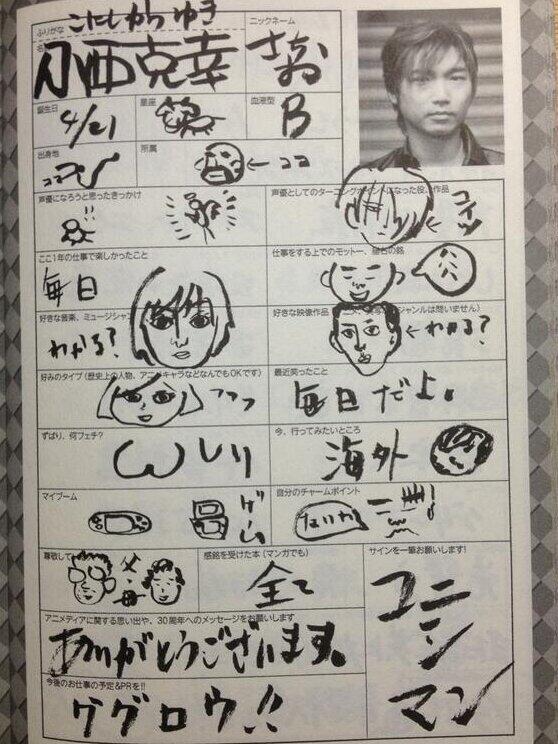 ふりがな こにしかつゆき
ニックネーム
名 小西克幸
さお
誕生日
星座
血液型
4/21
B
出身地
所属
ココ
声優になろうと思ったきっかけ
声優としてのターニングポイントになった役、作品
コイツ
ここ1年の仕事で楽しかったこと
仕事をする上でのモットー、座右の銘
毎日
ハハ
好きな音楽、ミュージシャン
好きな映像作品
ジャンルは問いません)
わかる?
わかる?
好みのタイプ(歴史上の人物、アニメキャラなどなんでもOKです)
最近笑ったこと
フフフ
毎日だよ。
ずばり、何フェチ?
今、行ってみたいところ
しり
海外
マイブーム
自分のチャームポイント
ゲーム
ないわ
尊敬して
感銘を受けた本(マンガでも)
サインを一筆お願いします!
父・母
全て
コニシマン
アニメディアに関する思い出や、30周年へのメッセージをお願いします
ありがとうございます。
今後のお仕事の予定&PRを!!
ググロウ!!